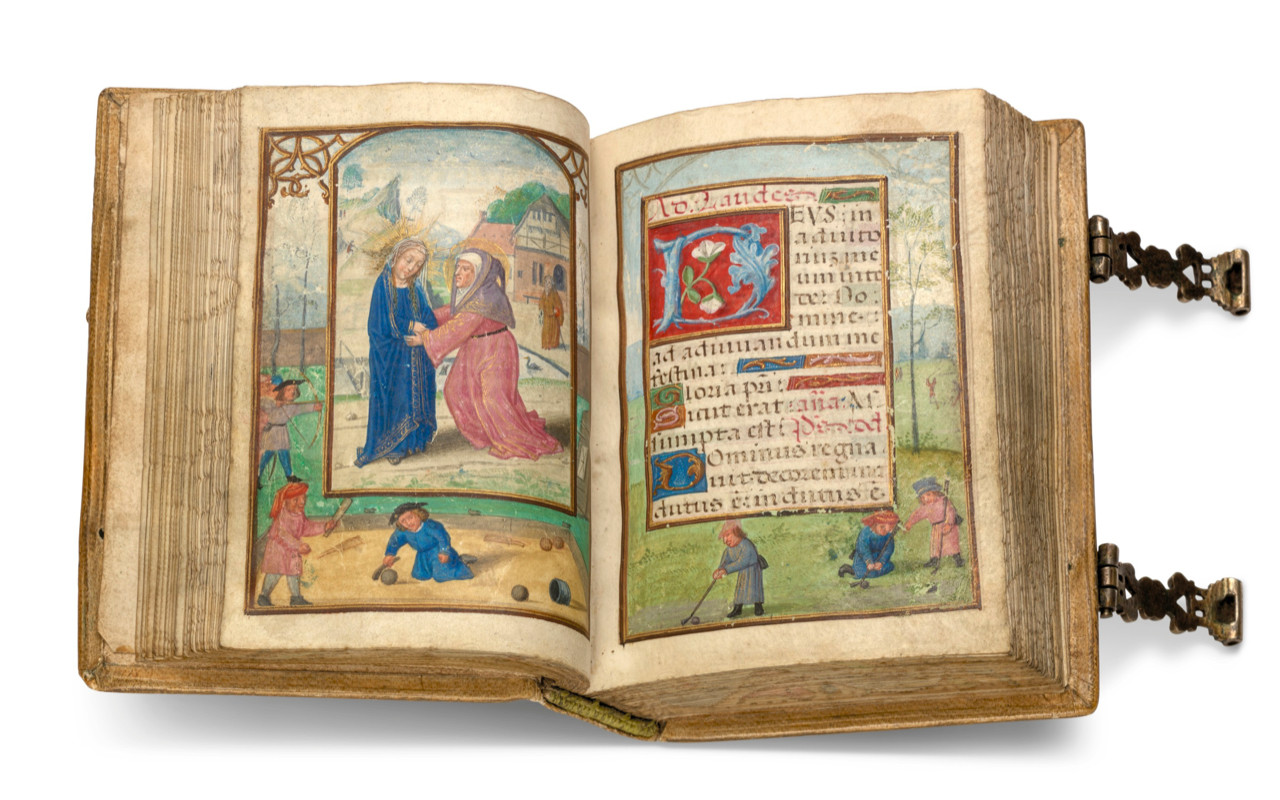 Ad Laudes
DEVS in
adiuto
riū me
um inte
de: Do:
mine:
ad adiuuandum me
festina:
Gloria pri:
Sicut erat: aña: As
sumpta est: Ps
Dominus regna
uit decorem in
dutus ē: indutus ē